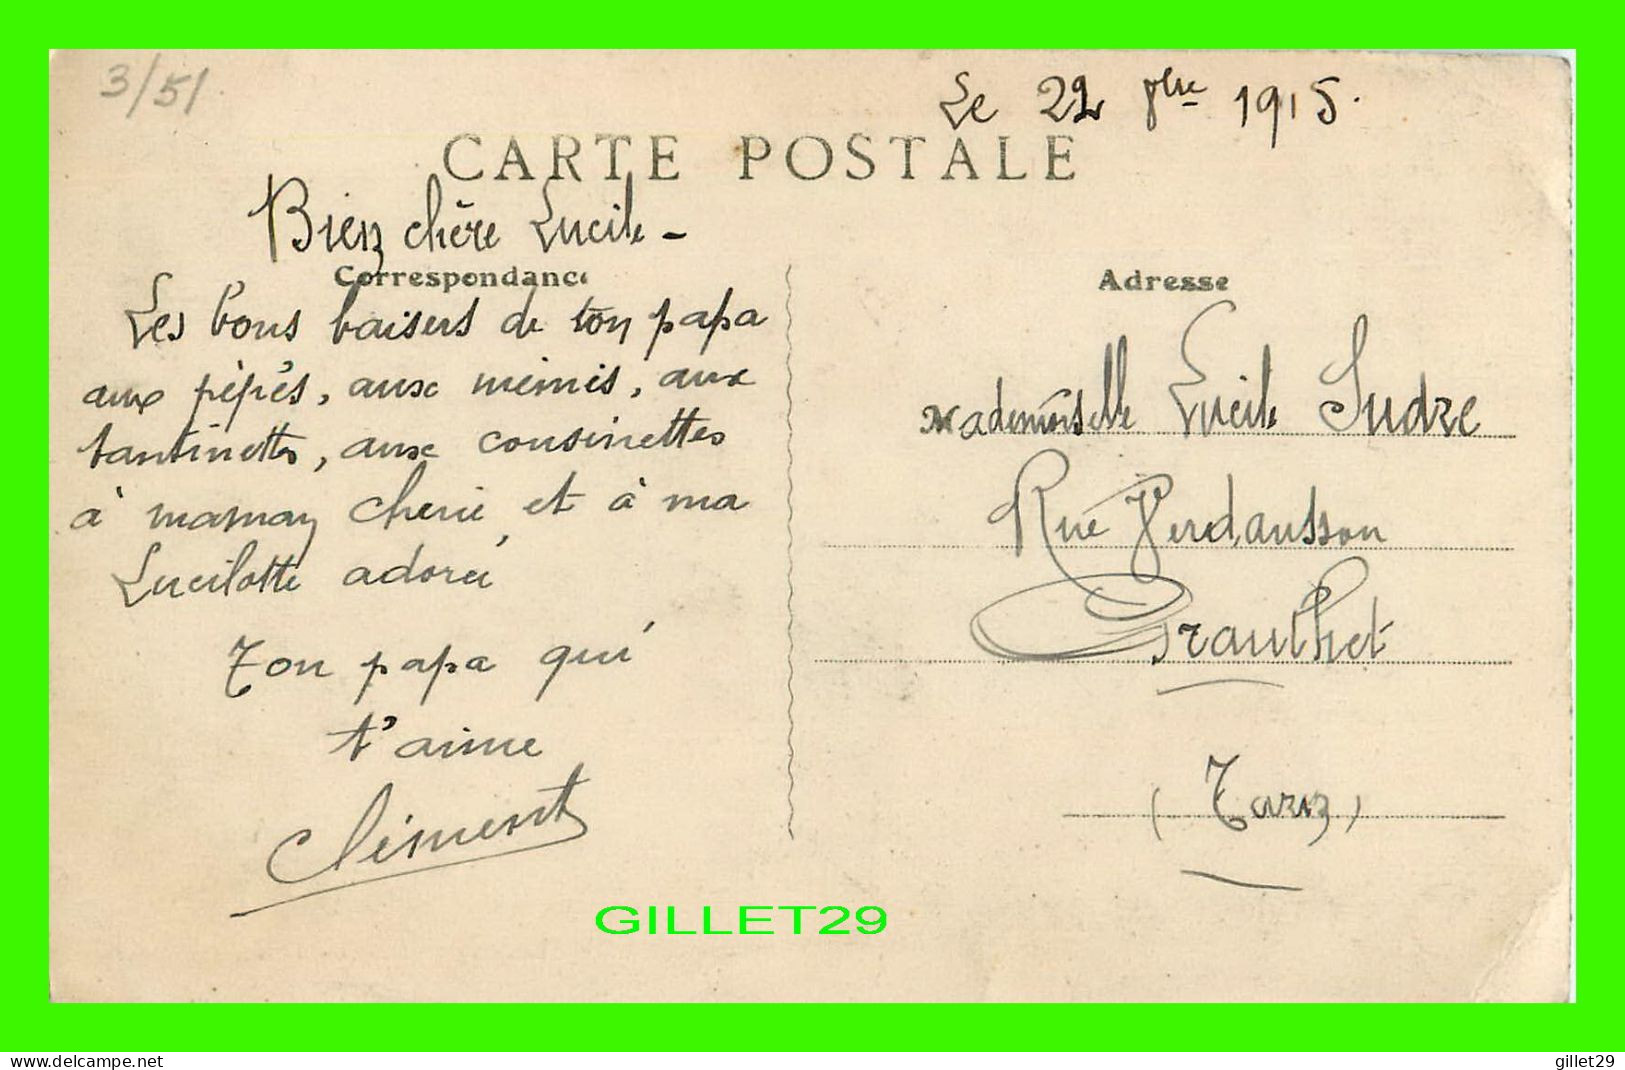 3/51
Le 22 8bre 1915.
CARTE POSTALE
Bien chère Lucile -
Correspondance
Les bons baisers de ton papa
aux pépés, aux mémés, aux
tantinettes, aux cousinettes
à maman cherie, et à ma
Lucilotte adorée
Ton papa qui
t'aime
Clément
Adresse
Mademoiselle Lucile Sudre
Rue Verdaussou
Graulhet
(Tarn)
GILLET29
www.delcampe.net
gillet29